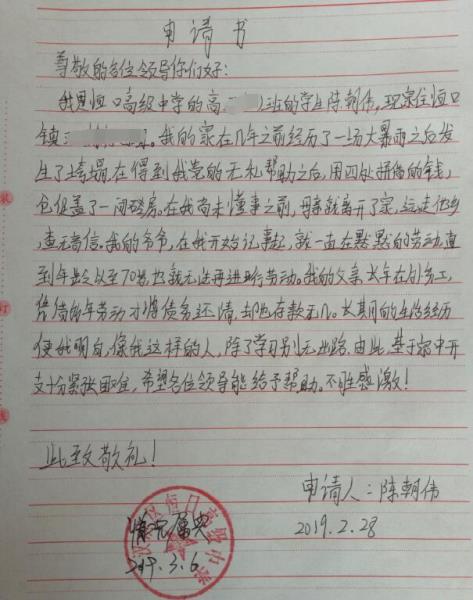 申请书
尊敬的各位领导你们好:
我是恒口高级中学的高 班的学生陈朝伟,现家住恒口
镇 。我的家在几年之前经历了一场大暴雨之后发
生了垮塌,在得到我党的无私帮助之后,用四处拼借的钱,
仓促盖了一间砖房。在我尚未懂事之前,母亲就离开了家,远走他乡
,查无音信。我的爷爷,在我开始记事起,就一直在默默的劳动,直
到年龄以至70岁,也就无法再进行劳动。我的父亲长年在外务工,
凭借多年劳动才将债务还清,却也存款无几。长期的生活经历
使我明白,像我这样的人,除了学习别无出路。由此,基于家中开
支十分紧张困难,希望各位领导能给予帮助。不胜感激!
此致敬礼!
申请人:陈朝伟
2019.2.28
情况属实
2019.3.6
恒口高级中学